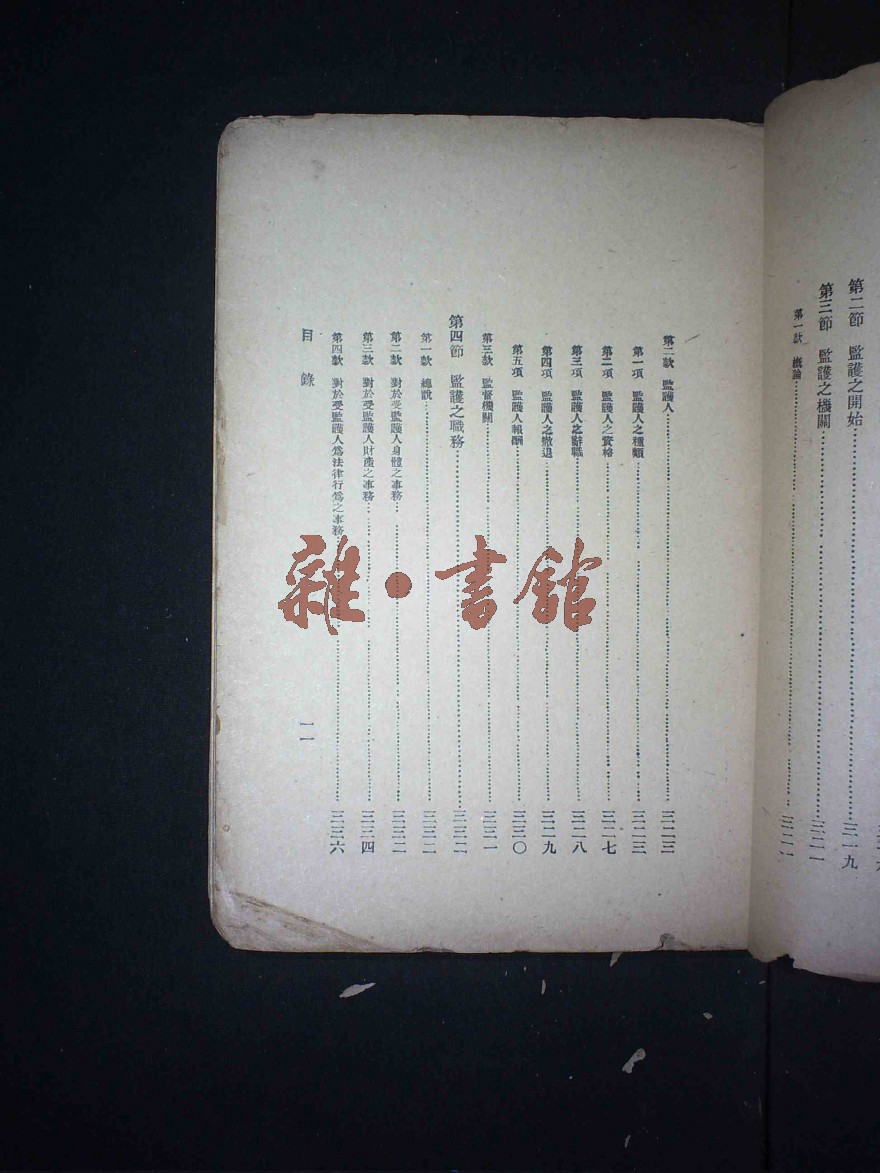 第二節　監護之開始……三一九
第三節　監護之機關……三二一
第一款　概論……三二一
第二款　監護人……三二三
第一項　監護人之種類……三二三
第二項　監護人之資格……三二七
第三項　監護人之辭職……三二八
第四項　監護人之撤退……三二九
第五項　監護人報酬……三三〇
第三款　監督機關……三三一
第四節　監護之職務……三三二
第一款　總說……三三二
第二款　對於受監護人身體之事務……三三二
第三款　對於受監護人財產之事務……三三四
第四款　對於受監護人爲法律行爲之事務……三三六
目錄
一一
雜·書館